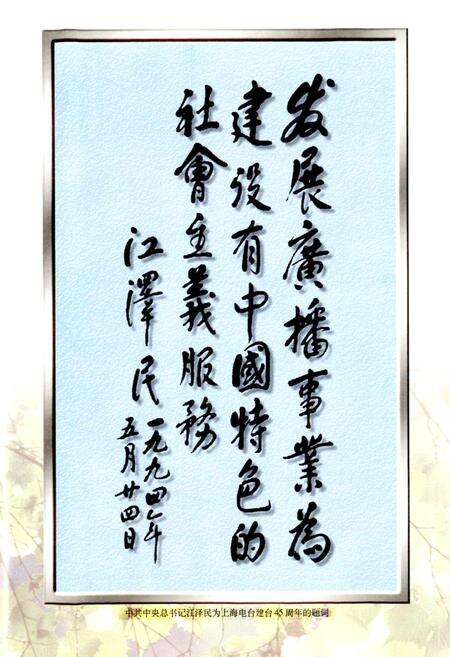 发展廣播事業為
建设有中國特色的
社會主義服務
江澤民
一九九四年
五月廿四日
中共中央总书记江泽民为上海电台建台45周年的题词